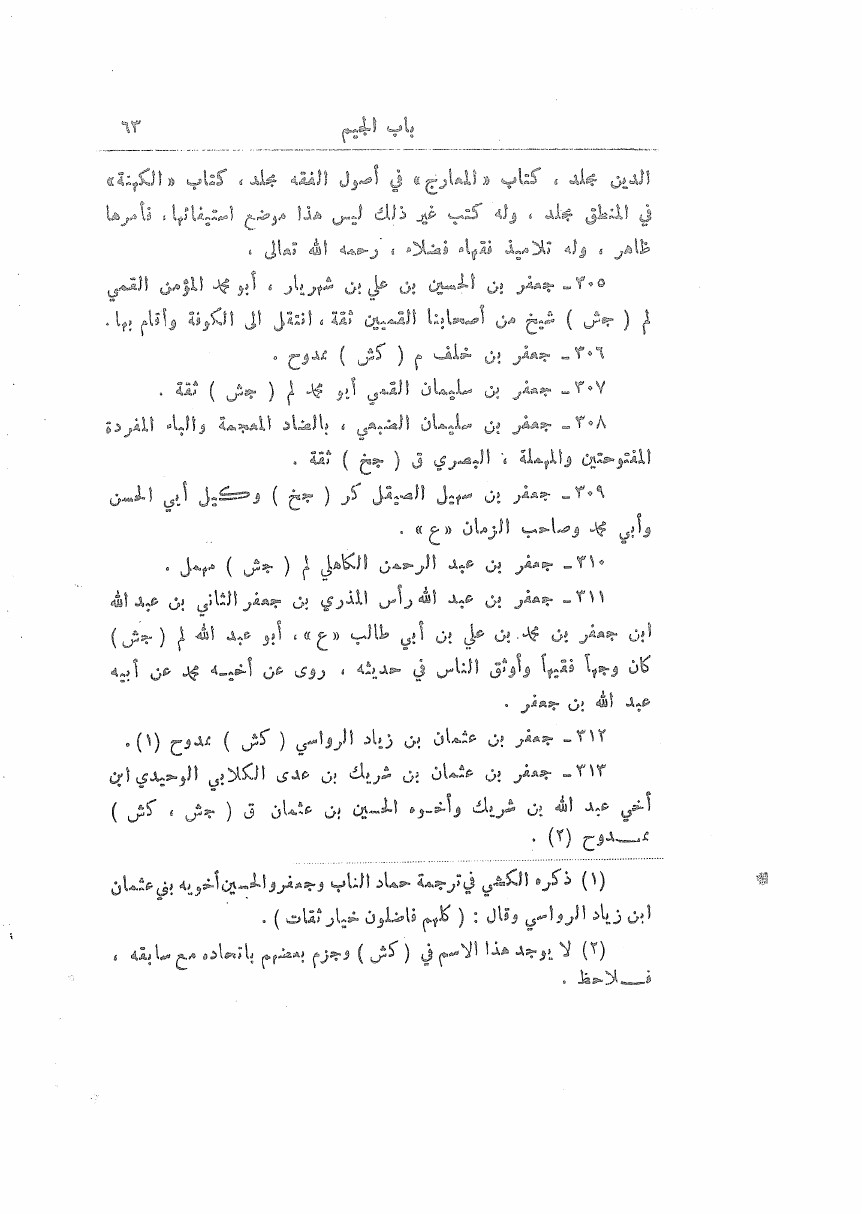 باب الجيم ٦٣
الدين مجلد ، كتاب « المعارج » في أصول الفقه مجلد ، كتاب « الكهنة »
في المنطق مجلد ، وله كتب غير ذلك ليس هذا موضع استيفائها ، فأمرها
ظاهر ، وله تلاميذ فقهاء فضلاء ، رحمه الله تعالى .
٣٠٥ ـ جعفر بن الحسين بن علي بن شهريار ، أبو محمد المؤمن القمي
لم ( جش ) شيخ من أصحابنا القميين ثقة ، انتقل الى الكوفة وأقام بها .
٣٠٦ ـ جعفر بن خلف م ( كش ) ممدوح .
٣٠٧ ـ جعفر بن سليمان القمي أبو محمد لم ( جش ) ثقة .
٣٠٨ ـ جعفر بن سليمان الضبعي ، بالضاد المعجمة والباء المفردة
المفتوحتين والمهملة ، البصري ق ( جخ ) ثقة .
٣٠٩ ـ جعفر بن سهيل الصيقل كر ( جخ ) وكيل أبي الحسن
وأبي محمد وصاحب الزمان « ع » .
٣١٠ ـ جعفر بن عبد الرحمن الكاهلي لم ( جش ) مهمل .
٣١١ ـ جعفر بن عبد الله رأس المذري بن جعفر الثاني بن عبد الله
ابن جعفر بن محمد بن علي بن أبي طالب « ع » ، أبو عبد الله لم ( جش )
كان وجهاً فقيهاً وأوثق الناس في حديثه ، روى عن أخيه محمد عن أبيه
عبد الله بن جعفر .
٣١٢ ـ جعفر بن عثمان بن زياد الرواسي ( كش ) ممدوح (١) .
٣١٣ ـ جعفر بن عثمان بن شريك بن عدى الكلابي الوحيدي ابن
أخي عبد الله بن شريك وأخوه الحسين بن عثمان ق ( جش ، كش )
ممدوح (٢) .
(١) ذكره الكشي في ترجمة حماد الناب وجعفر والحسين أخويه بني عثمان
ابن زياد الرواسي وقال : ( كلهم فاضلون خيار ثقات ) .
(٢) لا يوجد هذا الاسم في ( كش ) وجزم بعضهم باتحاده مع سابقه ،
فلاحظ .